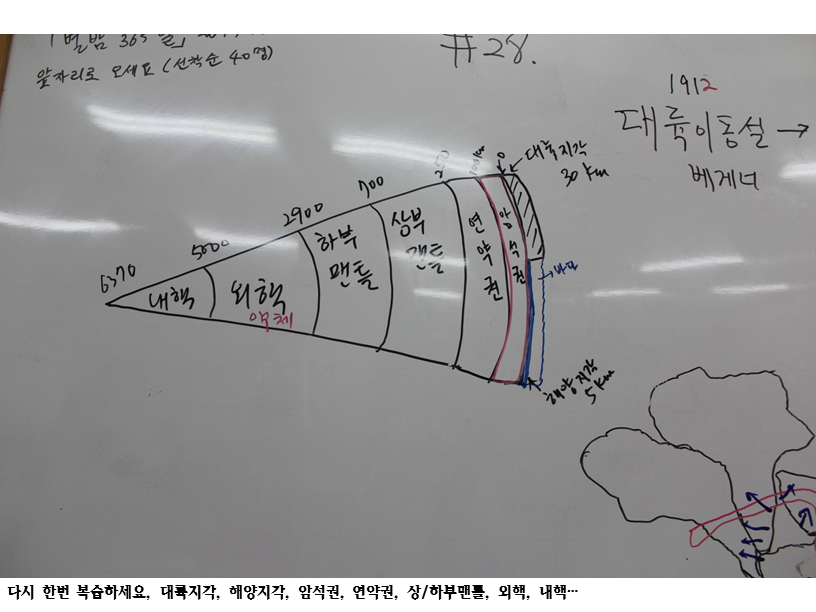 「별밤 365일」
앞자리로 오세요 (선착순 40명)
#28.
1912
대륙이동설 →
베게너
대륙지각
30 km
0
100km
700
2900
5000
6370
내핵
외핵
액체
하부
맨틀
상부
맨틀
연약권
암석권
바다
해양지각
5 km
다시 한번 복습하세요, 대륙지각, 해양지각, 암석권, 연약권, 상/하부맨틀, 외핵, 내핵…